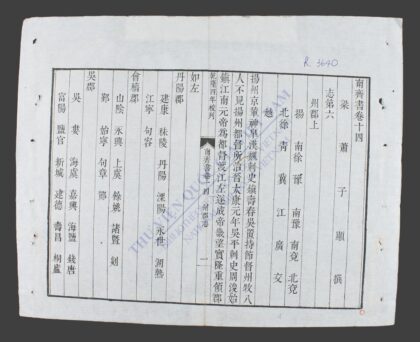 南齊書卷十四
梁 蕭 子 顯 撰
志第六
州郡上
揚 南徐 豫 南豫 南兗 北兗
北徐 青 冀 江 廣 交
越
揚州京輦神皋漢魏刺史鎮壽春吳置持節督州牧八
人不見揚州都督所治晉太康元年吳平刺史周浚始
鎮江南元帝為都督渡江左遂成帝畿望實隆重領郡
乾隆四年校刊
南齊書卷十四 州郡志 一
如左
丹陽郡
建康 秣陵 丹陽 溧陽 永世 湖熟
江寧 句容
會稽郡
山陰 永興 上虞 餘姚 諸暨 剡
鄞 始寧 句章 鄮
吳郡
吳 婁 海虞 嘉興 海鹽 錢唐
富陽 鹽官 新城 建德 壽昌 桐廬
R. 3640
THƯ VIỆN QUỐC GIA VIỆT NAM